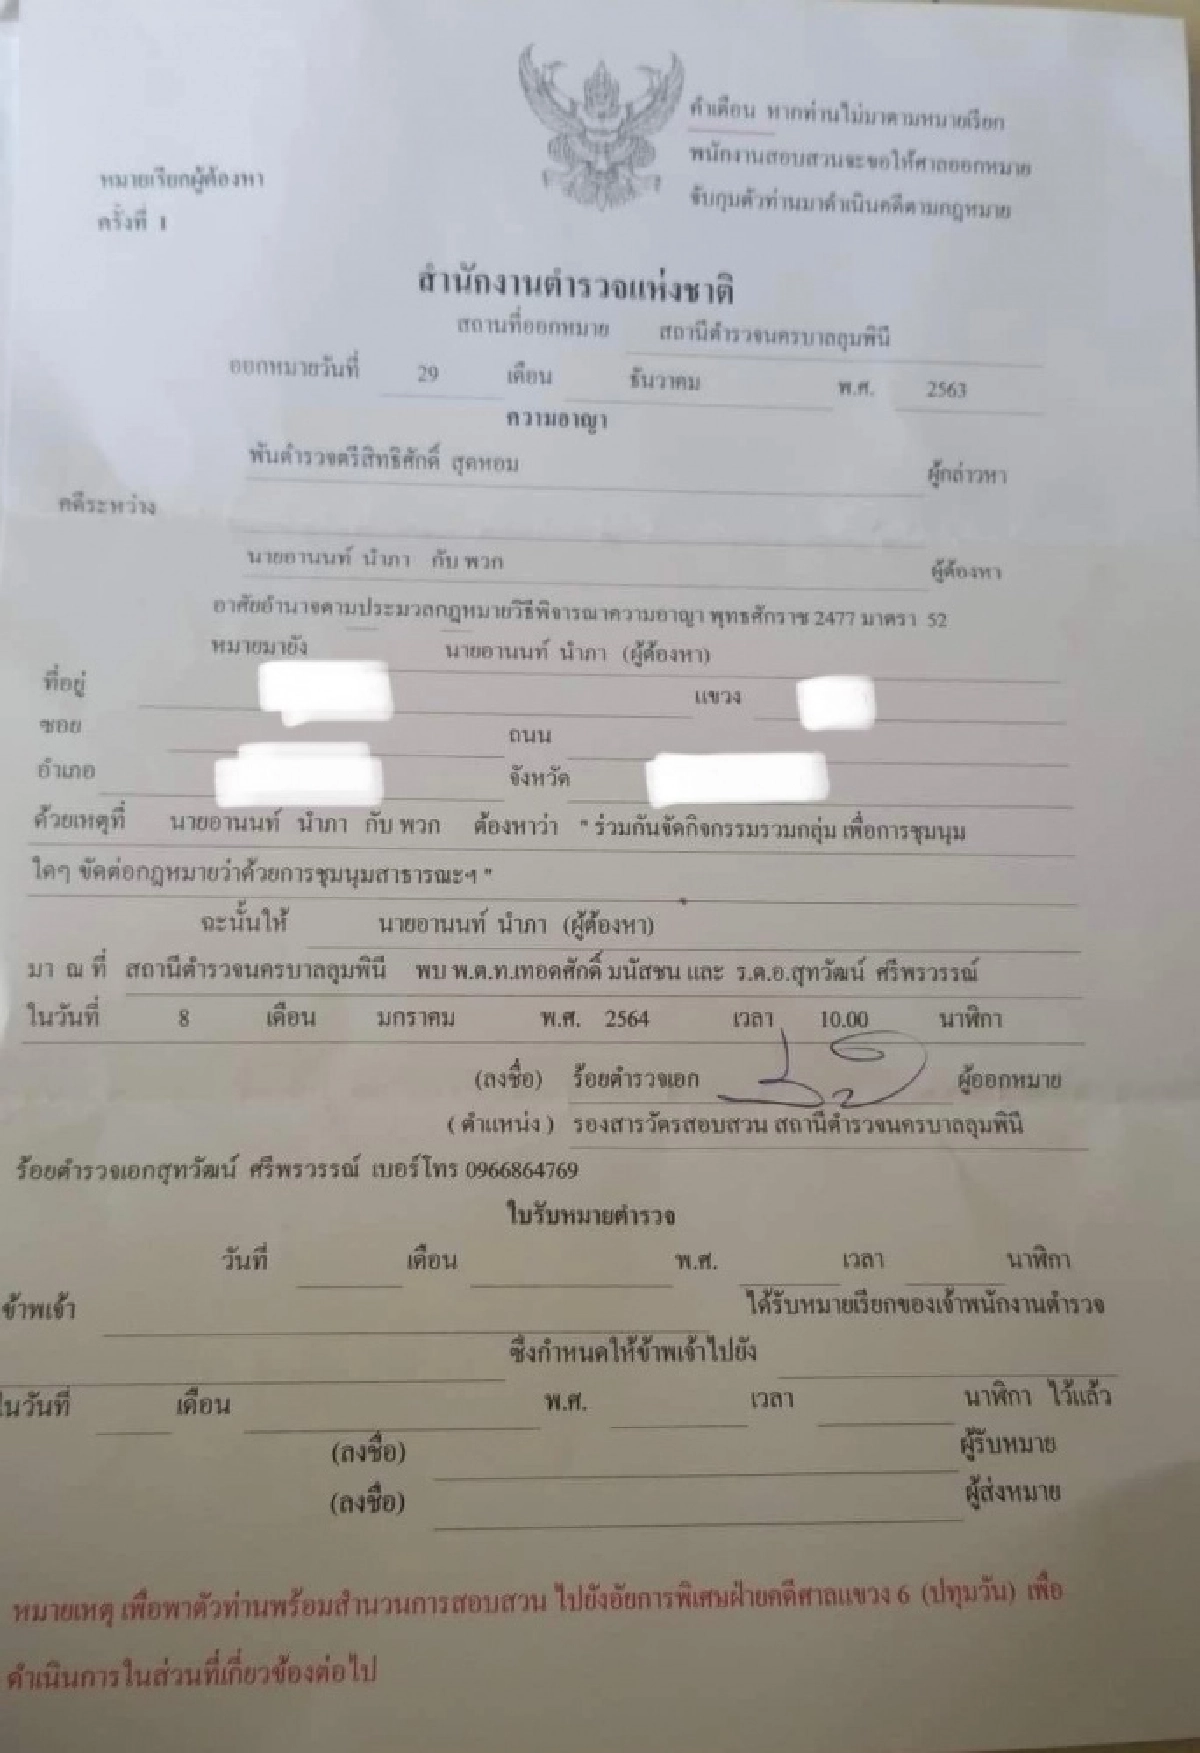 คำเตือน หากท่านไม่มาตามหมายเรียก
พนักงานสอบสวนจะขอให้ศาลออกหมาย
จับกุมตัวท่านมาดำเนินคดีตามกฎหมาย
หมายเรียกผู้ต้องหา
ครั้งที่ 1
สำนักงานตำรวจแห่งชาติ
สถานที่ออกหมาย สถานีตำรวจนครบาลลุมพินี
ออกหมายวันที่ 29 เดือน ธันวาคม พ.ศ. 2563
ความอาญา
พันตำรวจตรีสิทธิศักดิ์ สุดหอม ผู้กล่าวหา
คดีระหว่าง
นายอานนท์ นำภา กับ พวก ผู้ต้องหา
อาศัยอำนาจตามประมวลกฎหมายวิธีพิจารณาความอาญา พุทธศักราช 2477 มาตรา 52
หมายมายัง นายอานนท์ นำภา (ผู้ต้องหา)
ที่อยู่ แขวง
ซอย ถนน
อำเภอ จังหวัด
ด้วยเหตุที่ นายอานนท์ นำภา กับ พวก ต้องหาว่า " ร่วมกันจัดกิจกรรมรวมกลุ่ม เพื่อการชุมนุม
ใดๆ ขัดต่อกฎหมายว่าด้วยการชุมนุมสาธารณะฯ "
ฉะนั้นให้ นายอานนท์ นำภา (ผู้ต้องหา)
มา ณ ที่ สถานีตำรวจนครบาลลุมพินี พบ พ.ต.ท.เทอดศักดิ์ มนัสชน และ ร.ต.อ.สุทวัฒน์ ศรีพรวรรณ์
ในวันที่ 8 เดือน มกราคม พ.ศ. 2564 เวลา 10.00 นาฬิกา
(ลงชื่อ) ร้อยตำรวจเอก ผู้ออกหมาย
( ตำแหน่ง ) รองสารวัตรสอบสวน สถานีตำรวจนครบาลลุมพินี
ร้อยตำรวจเอกสุทวัฒน์ ศรีพรวรรณ์ เบอร์โทร 0966864769
ใบรับหมายตำรวจ
วันที่ เดือน พ.ศ. เวลา นาฬิกา
ข้าพเจ้า ได้รับหมายเรียกของเจ้าพนักงานตำรวจ
ซึ่งกำหนดให้ข้าพเจ้าไปยัง
ในวันที่ เดือน พ.ศ. เวลา นาฬิกา ไว้แล้ว
(ลงชื่อ) ผู้รับหมาย
(ลงชื่อ) ผู้ส่งหมาย
หมายเหตุ เพื่อพาตัวท่านพร้อมสำนวนการสอบสวน ไปยังอัยการพิเศษฝ่ายคดีศาลแขวง 6 (ปทุมวัน) เพื่อ
ดำเนินการในส่วนที่เกี่ยวข้องต่อไป